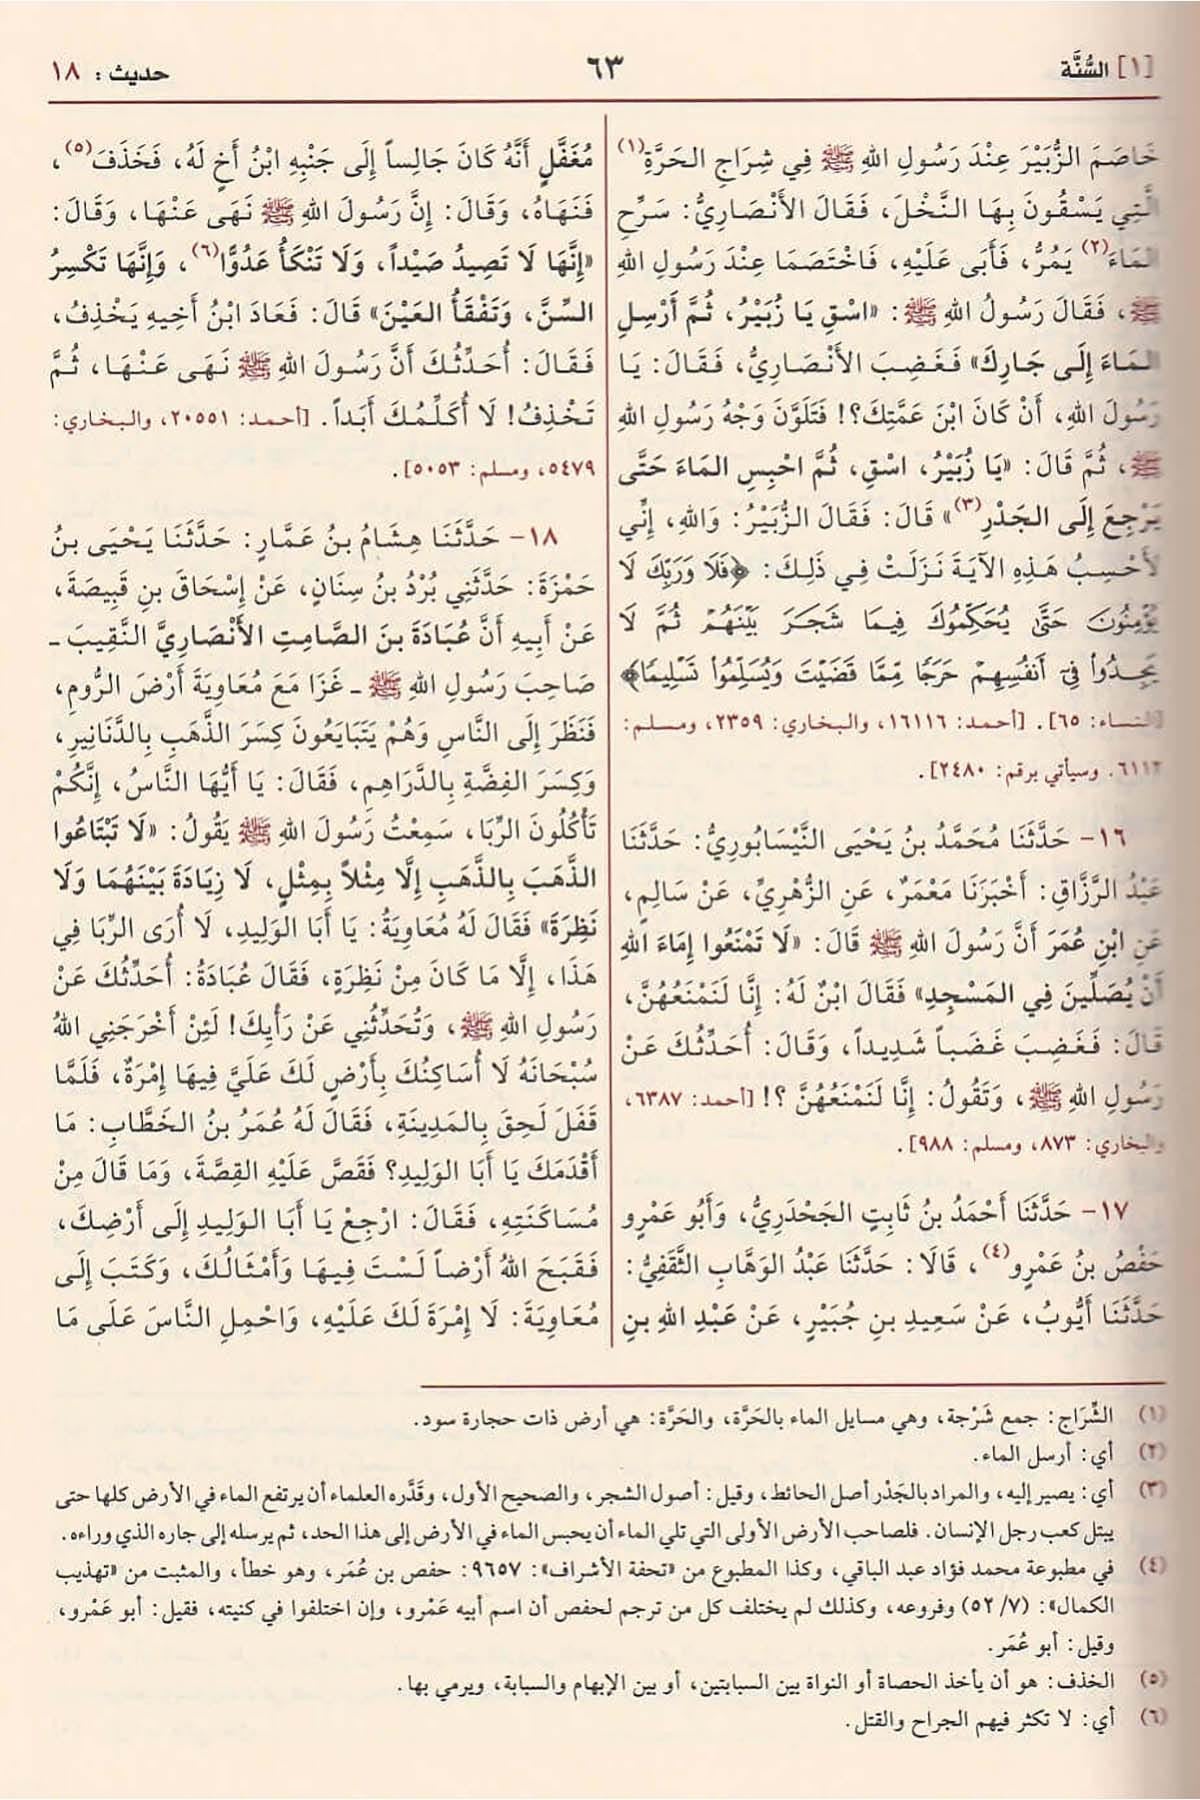 [١] السُّنَّة
٦٣
حديث : ١٨
خَاصَمَ الزُّبَيْرَ عِنْدَ رَسُولِ اللهِ ﷺ فِي شِرَاجِ الحَرَّةِ(١)
الَّتِي يَسْقُونَ بِهَا النَّخْلَ، فَقَالَ الأَنْصَارِيُّ: سَرِّحِ
المَاءَ(٢) يَمُرُّ، فَأَبَى عَلَيْهِ، فَاخْتَصَمَا عِنْدَ رَسُولِ اللهِ
ﷺ، فَقَالَ رَسُولُ اللهِ ﷺ: «اسْقِ يَا زُبَيْرُ، ثُمَّ أَرْسِلِ
المَاءَ إِلَى جَارِكَ» فَغَضِبَ الأَنْصَارِيُّ، فَقَالَ: يَا
رَسُولَ اللهِ، أَنْ كَانَ ابْنَ عَمَّتِكَ؟! فَتَلَوَّنَ وَجْهُ رَسُولِ اللهِ
ﷺ، ثُمَّ قَالَ: «يَا زُبَيْرُ، اسْقِ، ثُمَّ احْبِسِ المَاءَ حَتَّى
يَرْجِعَ إِلَى الجَدْرِ(٣)» قَالَ: فَقَالَ الزُّبَيْرُ: وَاللهِ، إِنِّي
لَأَحْسِبُ هَذِهِ الآيَةَ نَزَلَتْ فِي ذَلِكَ: ﴿فَلَا وَرَبِّكَ لَا
يُؤْمِنُونَ حَتَّى يُحَكِّمُوكَ فِيمَا شَجَرَ بَيْنَهُمْ ثُمَّ لَا
يَجِدُوا فِي أَنفُسِهِمْ حَرَجًا مِّمَّا قَضَيْتَ وَيُسَلِّمُوا تَسْلِيمًا﴾
[النساء: ٦٥]. [أحمد: ١٦١١٦، والبخاري: ٢٣٥٩، ومسلم:
٦١١٢. وسيأتي برقم: ٢٤٨٠].
١٦- حَدَّثَنَا مُحَمَّدُ بنُ يَحْيَى النَّيْسَابُورِيُّ: حَدَّثَنَا
عَبْدُ الرَّزَّاقِ: أَخْبَرَنَا مَعْمَرٌ، عَنِ الزُّهْرِيِّ، عَنْ سَالِمٍ،
عَنِ ابْنِ عُمَرَ أَنَّ رَسُولَ اللهِ ﷺ قَالَ: «لَا تَمْنَعُوا إِمَاءَ اللهِ
أَنْ يُصَلِّينَ فِي المَسْجِدِ» فَقَالَ ابْنٌ لَهُ: إِنَّا لَنَمْنَعُهُنَّ،
قَالَ: فَغَضِبَ غَضَباً شَدِيداً، وَقَالَ: أُحَدِّثُكَ عَنْ
رَسُولِ اللهِ ﷺ، وَتَقُولُ: إِنَّا لَنَمْنَعُهُنَّ؟! [أحمد: ٦٣٨٧،
والبخاري: ٨٧٣، ومسلم: ٩٨٨].
١٧- حَدَّثَنَا أَحْمَدُ بنُ ثَابِتٍ الجَحْدَرِيُّ، وَأَبُو عَمْرٍو
حَفْصُ بنُ عَمْرٍو(٤)، قَالَا: حَدَّثَنَا عَبْدُ الوَهَّابِ الثَّقَفِيُّ:
حَدَّثَنَا أَيُّوبُ، عَنْ سَعِيدِ بنِ جُبَيْرٍ، عَنْ عَبْدِ اللهِ بنِ
مُغَفَّلٍ أَنَّهُ كَانَ جَالِساً إِلَى جَنْبِهِ ابْنُ أَخٍ لَهُ، فَخَذَفَ(٥)،
فَنَهَاهُ، وَقَالَ: إِنَّ رَسُولَ اللهِ ﷺ نَهَى عَنْهَا، وَقَالَ:
«إِنَّهَا لَا تَصِيدُ صَيْداً، وَلَا تَنْكَأُ عَدُوًّا(٦)، وَإِنَّهَا تَكْسِرُ
السِّنَّ، وَتَفْقَأُ العَيْنَ» قَالَ: فَعَادَ ابْنُ أَخِيهِ يَخْذِفُ،
فَقَالَ: أُحَدِّثُكَ أَنَّ رَسُولَ اللهِ ﷺ نَهَى عَنْهَا، ثُمَّ
تَخْذِفُ! لَا أُكَلِّمُكَ أَبَداً. [أحمد: ٢٠٥٥١، والبخاري:
٥٤٧٩، ومسلم: ٥٠٥٣].
١٨- حَدَّثَنَا هِشَامُ بنُ عَمَّارٍ: حَدَّثَنَا يَحْيَى بنُ
حَمْزَةَ: حَدَّثَنِي بُرْدُ بنُ سِنَانٍ، عَنْ إِسْحَاقَ بنِ قَبِيصَةَ،
عَنْ أَبِيهِ أَنَّ عُبَادَةَ بنَ الصَّامِتِ الأَنْصَارِيَّ النَّقِيبَ ـ
صَاحِبَ رَسُولِ اللهِ ﷺ ـ غَزَا مَعَ مُعَاوِيَةَ أَرْضَ الرُّومِ،
فَنَظَرَ إِلَى النَّاسِ وَهُمْ يَتَبَايَعُونَ كِسَرَ الذَّهَبِ بِالدَّنَانِيرِ،
وَكِسَرَ الفِضَّةِ بِالدَّرَاهِمِ، فَقَالَ: يَا أَيُّهَا النَّاسُ، إِنَّكُمْ
تَأْكُلُونَ الرِّبَا، سَمِعْتُ رَسُولَ اللهِ ﷺ يَقُولُ: «لَا تَبْتَاعُوا
الذَّهَبَ بِالذَّهَبِ إِلَّا مِثْلاً بِمِثْلٍ، لَا زِيَادَةَ بَيْنَهُمَا وَلَا
نَظِرَةَ» فَقَالَ لَهُ مُعَاوِيَةُ: يَا أَبَا الوَلِيدِ، لَا أُرَى الرِّبَا فِي
هَذَا، إِلَّا مَا كَانَ مِنْ نَظِرَةٍ، فَقَالَ عُبَادَةُ: أُحَدِّثُكَ عَنْ
رَسُولِ اللهِ ﷺ، وَتُحَدِّثُنِي عَنْ رَأْيِكَ! لَئِنْ أَخْرَجَنِي اللهُ
سُبْحَانَهُ لَا أُسَاكِنُكَ بِأَرْضٍ لَكَ عَلَيَّ فِيهَا إِمْرَةٌ، فَلَمَّا
قَفَلَ لَحِقَ بِالمَدِينَةِ، فَقَالَ لَهُ عُمَرُ بنُ الخَطَّابِ: مَا
أَقْدَمَكَ يَا أَبَا الوَلِيدِ؟ فَقَصَّ عَلَيْهِ القِصَّةَ، وَمَا قَالَ مِنْ
مُسَاكَنَتِهِ، فَقَالَ: ارْجِعْ يَا أَبَا الوَلِيدِ إِلَى أَرْضِكَ،
فَقَبَحَ اللهُ أَرْضاً لَسْتَ فِيهَا وَأَمْثَالُكَ، وَكَتَبَ إِلَى
مُعَاوِيَةَ: لَا إِمْرَةَ لَكَ عَلَيْهِ، وَاحْمِلِ النَّاسَ عَلَى مَا
(١) الشِّرَاج: جمع شَرْجة، وهي مسايل الماء بالحَرَّة، والحَرَّة: هي أرض ذات حجارة سود.
(٢) أي: أرسل الماء.
(٣) أي: يصير إليه، والمراد بالجَدْر أصل الحائط، وقيل: أصول الشجر، والصحيح الأول، وقَدَّره العلماء أن يرتفع الماء في الأرض كلها حتى
يبتل كعب رجل الإنسان. فلصاحب الأرض الأولى التي تلي الماء أن يحبس الماء في الأرض إلى هذا الحد، ثم يرسله إلى جاره الذي وراءه.
(٤) في مطبوعة محمد فؤاد عبد الباقي، وكذا المطبوع من «تحفة الأشراف»: ٩٦٥٧: حفص بن عُمَر، وهو خطأ، والمثبت من «تهذيب
الكمال»: (٧/ ٥٢) وفروعه، وكذلك لم يختلف كل من ترجم لحفص أن اسم أبيه عَمْرو، وإن اختلفوا في كنيته، فقيل: أبو عَمْرو،
وقيل: أبو عُمَر.
(٥) الخذف: هو أن يأخذ الحصاة أو النواة بين السبابتين، أو بين الإبهام والسبابة، ويرمي بها.
(٦) أي: لا تكثر فيهم الجراح والقتل.